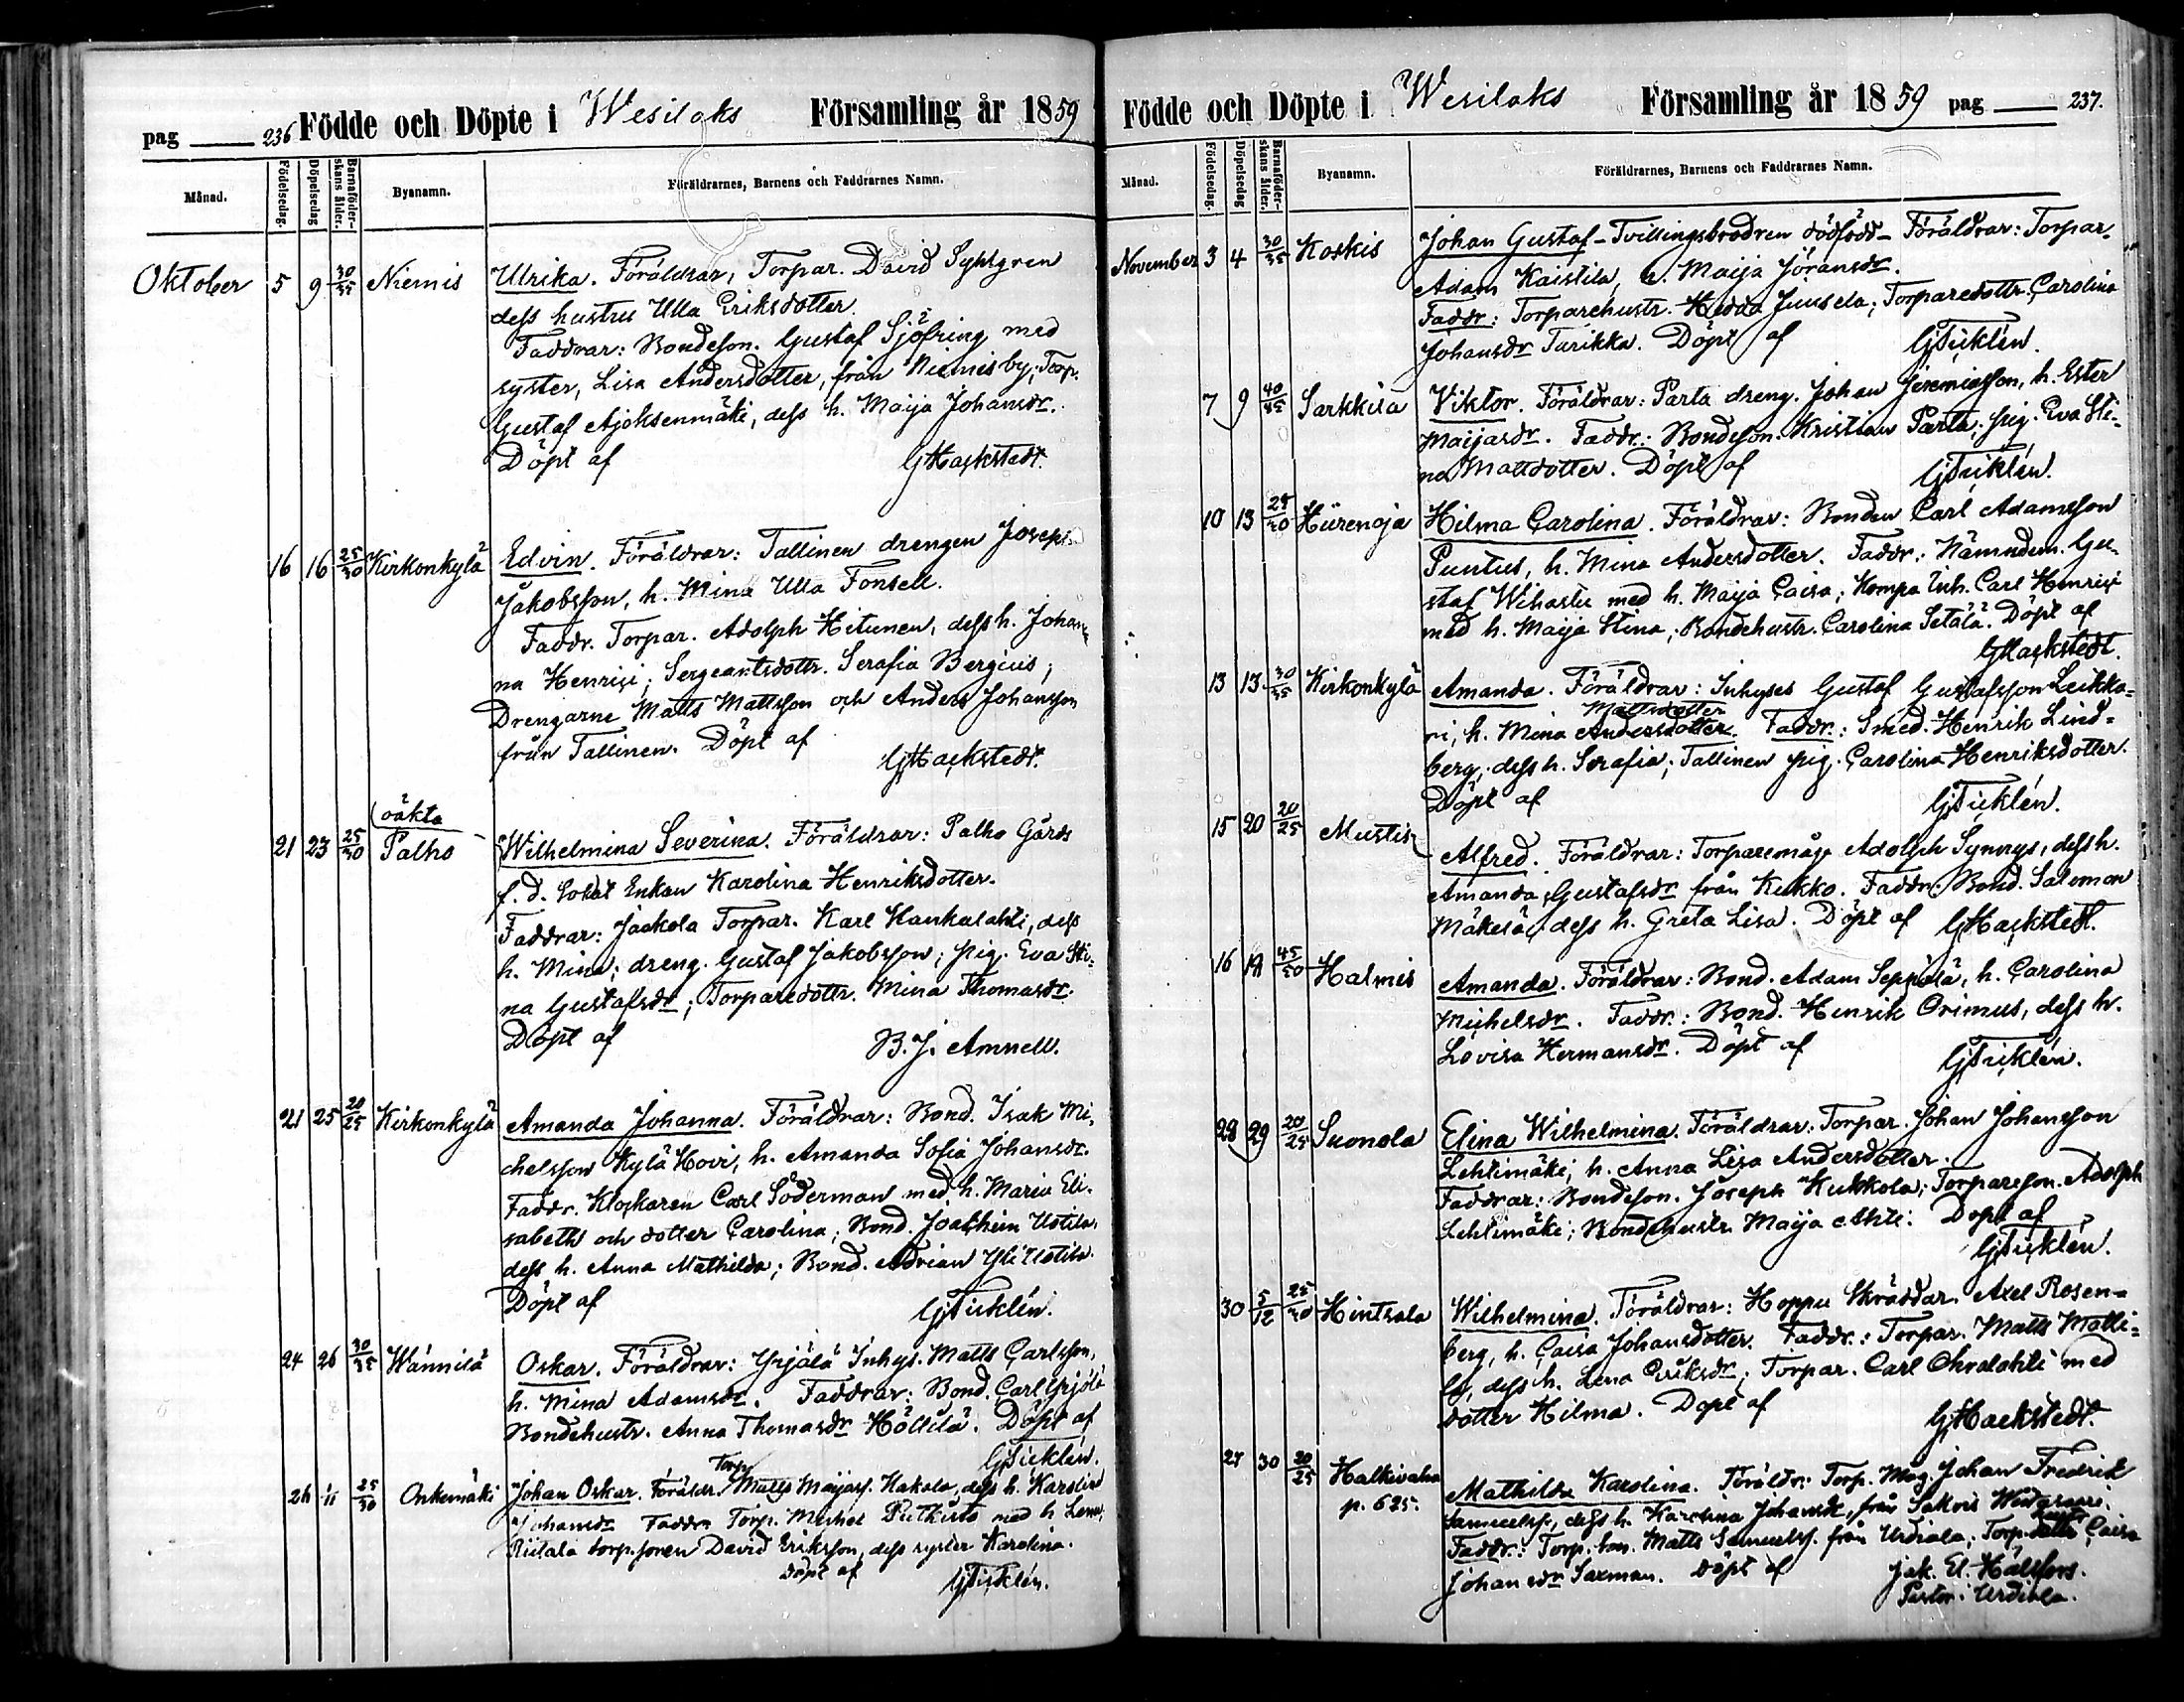 pag 236 Födde och Döpte i Wesilaks Församling år 1859
Månad. Födelsedag. Döpelsedag Barnaföderskans ålder. Byanamn. Föräldrarnes, Barnens och Faddrarnes Namn.
Oktober 5 9 30/35 Niemis Ulrika. Föräldrar, Torpar. David
dess hustru Ulla Eriksdotter.
Faddrar: Bondeson. Gustaf Sjöfring med
syster, Lisa Andersdotter, från Niemis by; Torp.
Gustaf Ajoksenmäki, dess h. Maija Johansdr.
Döpt af GHackstedt.
16 16 25/30 Kirkonkylä Edvin. Föräldrar: Tallinen drengen Josep
Jakobsson, h. Mina Ulla Fonsell.
Faddr. Torpar. Adolph Hitunen, dess h. Johan
na Henrici; Sergeantsdottr. Serafia Bergius;
Drengarne Matts Mattsson och Anders Johansson
från Tallinen. Döpt af GHackstedt.
oäkta
21 23 25/30 Palho Wilhelmina Severina. Föräldrar: Palho Gårds
f. d. Enkan Karolina Henriksdotter.
Faddrar: Jaakola Torpar. Karl Kankalahti, dess
h. Mina; dreng. Gustaf Jakobsson; pig. Eva Sti-
na Gustafsdr; Torparedottr. Mina Thomasdr.
Döpt af B. J. Amnell.
21 25 20/25 Kirkonkylä Amanda Johanna. Föräldrar: Bond. Isak Mi-
chelsson Kylä Hovi, h. Amanda Sofia Johansdr.
Faddr. Klockaren Carl Söderman med h. Maria Eli-
sabeth och dotter Carolina; Bond. Joachim Uotila,
dess h. Anna Mathilda; Bond. Adrian Yli Uotila.
Döpt af GTicklén.
24 26 30/35 Wännilä Oskar. Föräldrar: Yrjälä Inhys. Matts Carlsson,
h. Mina Adamsdr. Faddrar: Bond. Carl Yrjölä
Bondehustr. Anna Thomasdr Höllilä. Döpt af
GTicklén.
Torp.
26 1/11 25/30 Onkemäki Johan Oskar. Föräldr. Matts Maijass. Hakala, dess h. Karolina
Johansdr Faddr Torp. Michel Putkisto med h Lena,
Riitala torp.sonen David Eriksson, dess syster Karolina.
Döpt af GTicklén.
Födde och Döpte i Wesilaks Församling år 1859 pag 237.
Månad. Födelsedag. Döpelsedag Barnaföderskans ålder. Byanamn. Föräldrarnes, Barnens och Faddrarnes Namn.
November 3 4 30/35 Koskis Johan Gustaf - Tvillingsbrodren dödfödd - Föräldrar: Torpar.
Adam Kaistila, h. Maija Jöransdr.
Faddr: Torparehustr. Hedda Juusela; Torparedottr. Carolina
Johansdr Tarikka. Döpt af GTicklén.
7 9 40/45 Sarkkila Viktor. Föräldrar: Parta dreng. Johan Jeremiasson, h. Ester
Maijasdr. Faddr.: Bondeson. Kristian Parta; pig. Eva Sti-
na Mattdotter. Döpt af GTicklén.
10 13 25/30 Hiirenoja Hilma Carolina. Föräldrar: Bonden Carl Adamsson
Puntus, h. Mina Andersdotter. Faddr.: Nämndem. Gu-
staf Wihastu med h. Maija Caisa; Kompa Inh. Carl Henrici
med h. Maija Stina; Bondehustr. Carolina Setälä. Döpt af
GHackstedt.
13 13 30/35 Kirkonkylä Amanda. Föräldrar: Inhyses Gustaf Gustafsson Leikka-
Mattsdotter
ri, h. Mina Andersdotter. Faddr.: Smed. Henrik Lind-
berg, dess h. Serafia; Tallinen pig. Carolina Henriksdotter.
Döpt af GTicklén.
15 20 20/25 Mustis Alfred. Föräldrar: Torparemåg. Adolph Synnys, dess h.
Amanda Gustafsdr från Kukko. Faddr: Bond. Salomon
Mäkelä, dess h. Greta Lisa. Döpt af GHackstedt.
16 19 45/50 Halmis Amanda. Föräldrar: Bond. Adam Seppälä, h. Carolina
Michelsdr. Faddr.: Bond. Henrik Orimus, dess h.
Lovisa Hermansdr. Döpt af GTicklén.
28 29 20/25 Suonola Elina Wilhelmina. Föräldrar: Torpar. Johan Johansson
Lehtimäki, h. Anna Lisa Andersdotter.
Faddrar: Bondeson. Joseph Kukkola; Torpareson. Adolph
Lehtimäki; Bondehustr. Maija Ahti. Döpt af
GTicklén.
30 5/12 25/30 Hintsala Wilhelmina. Föräldrar: Hoppu Skräddar. Axel Rosen-
berg, h. Caisa Johansdotter. Faddr.: Torpar. Matts
dess h. Lena Eriksdr; Torpar. Carl med
dotter Hilma. Döpt af GHackstedt.
27 30 20/25 Halkivaha Mathilda Karolina. Föräldr: Torp. Måg. Johan Fredrik
p. 625. Samuelss., dess h. Karolina Johansdr, från Sakois
Faddr.: Torp. son. Matts Samuelss. från Urdiala; Torp. Caisa
Johansdr Saxman. Döpt af Jak. El. Hälsfors.
Pastor i Urdiala.